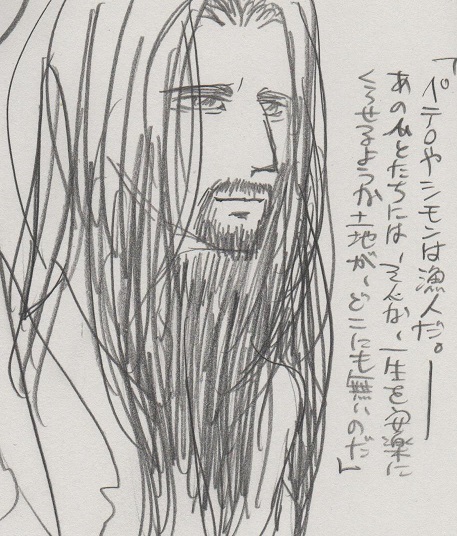 「ペテロやシモンは漁人だ。――
あのひとたちには、そんな、一生を安楽に
くらせるような土地が、どこにも無いのだ」